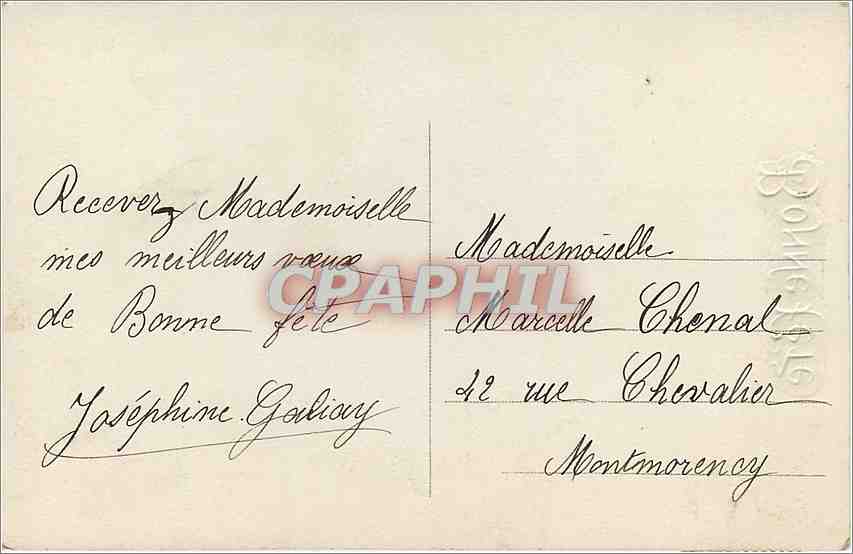 Recevez Mademoiselle
mes meilleurs vœux
de Bonne fête
Joséphine Galiay
Mademoiselle
Marcelle Chenal
42 rue Chevalier
Montmorency
BONNE FÊTE
CPAPHIL